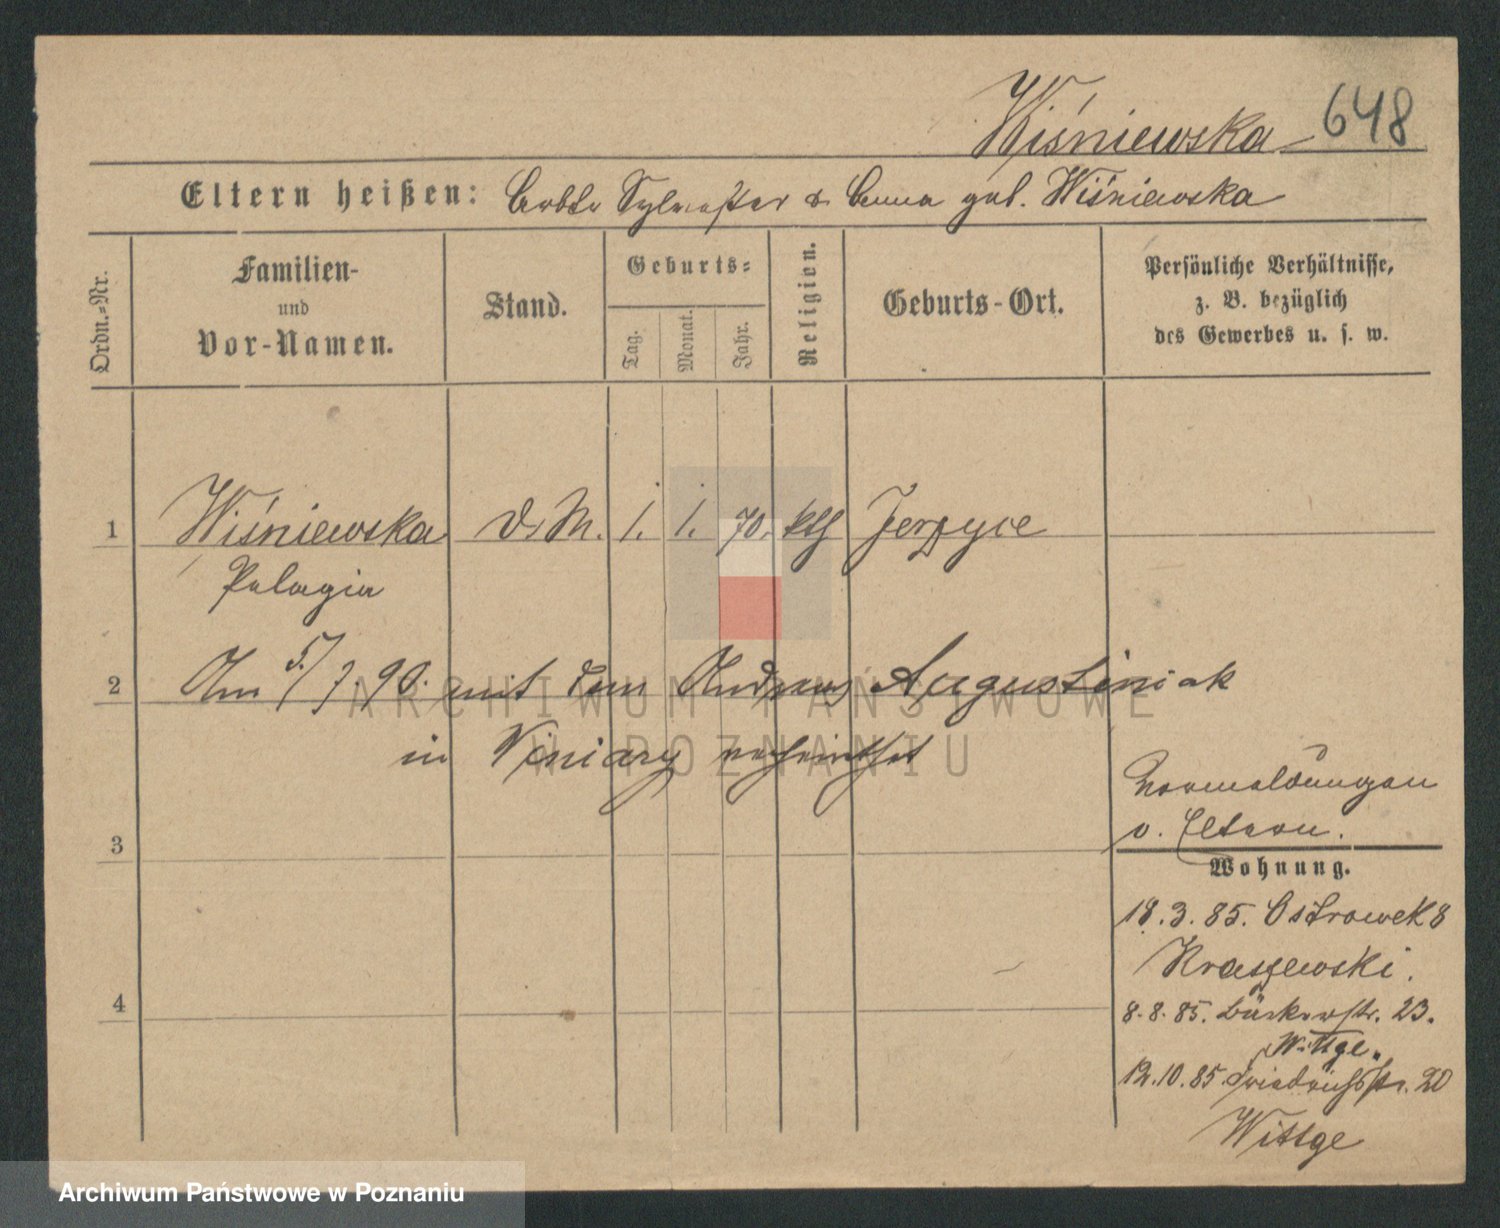 Wiśniewska 648
Eltern heißen: Sylvester & Anna geb. Wiśniewska
Ordn.-Nr.
Familien-
und
Vor-Namen.
Stand.
Geburts-
Tag.
Monat.
Jahr.
Religion.
Geburts-Ort.
Persönliche Verhältnisse,
z. B. bezüglich
des Gewerbes u. s. w.
1 Wiśniewska d. M. 1. 1. 70. kth Jerzyce
Pelagia
2 Am 5/7. 90. mit dem Andreas Augustiniak
in Viniary verheirathet
3
v. Eltern.
Wohnung.
18.3.85. Ostrowek 8
Kraszewski.
4
8.8.85. Bäckerstr. 23.
Wittge.
12.10.85. Friedrichsstr. 20
Wittge
ARCHIWUM PAŃSTWOWE
W POZNANIU
Archiwum Państwowe w Poznaniu